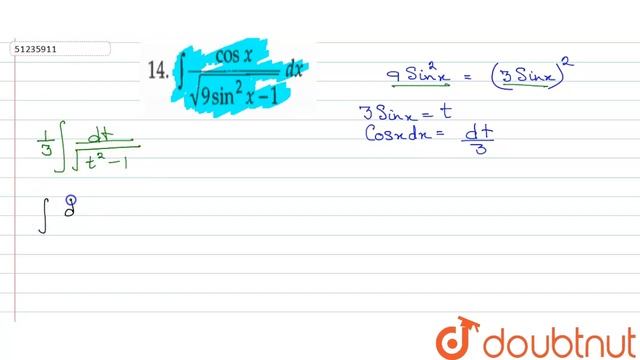 51235911
14. ∫ cos x / √(9 sin² x − 1) dx
9 Sin²x = (3 Sinx)²
3 Sinx = t
Cosx dx = dt/3
1/3 ∫ dt / √(t² − 1)
∫ d
doubtnut